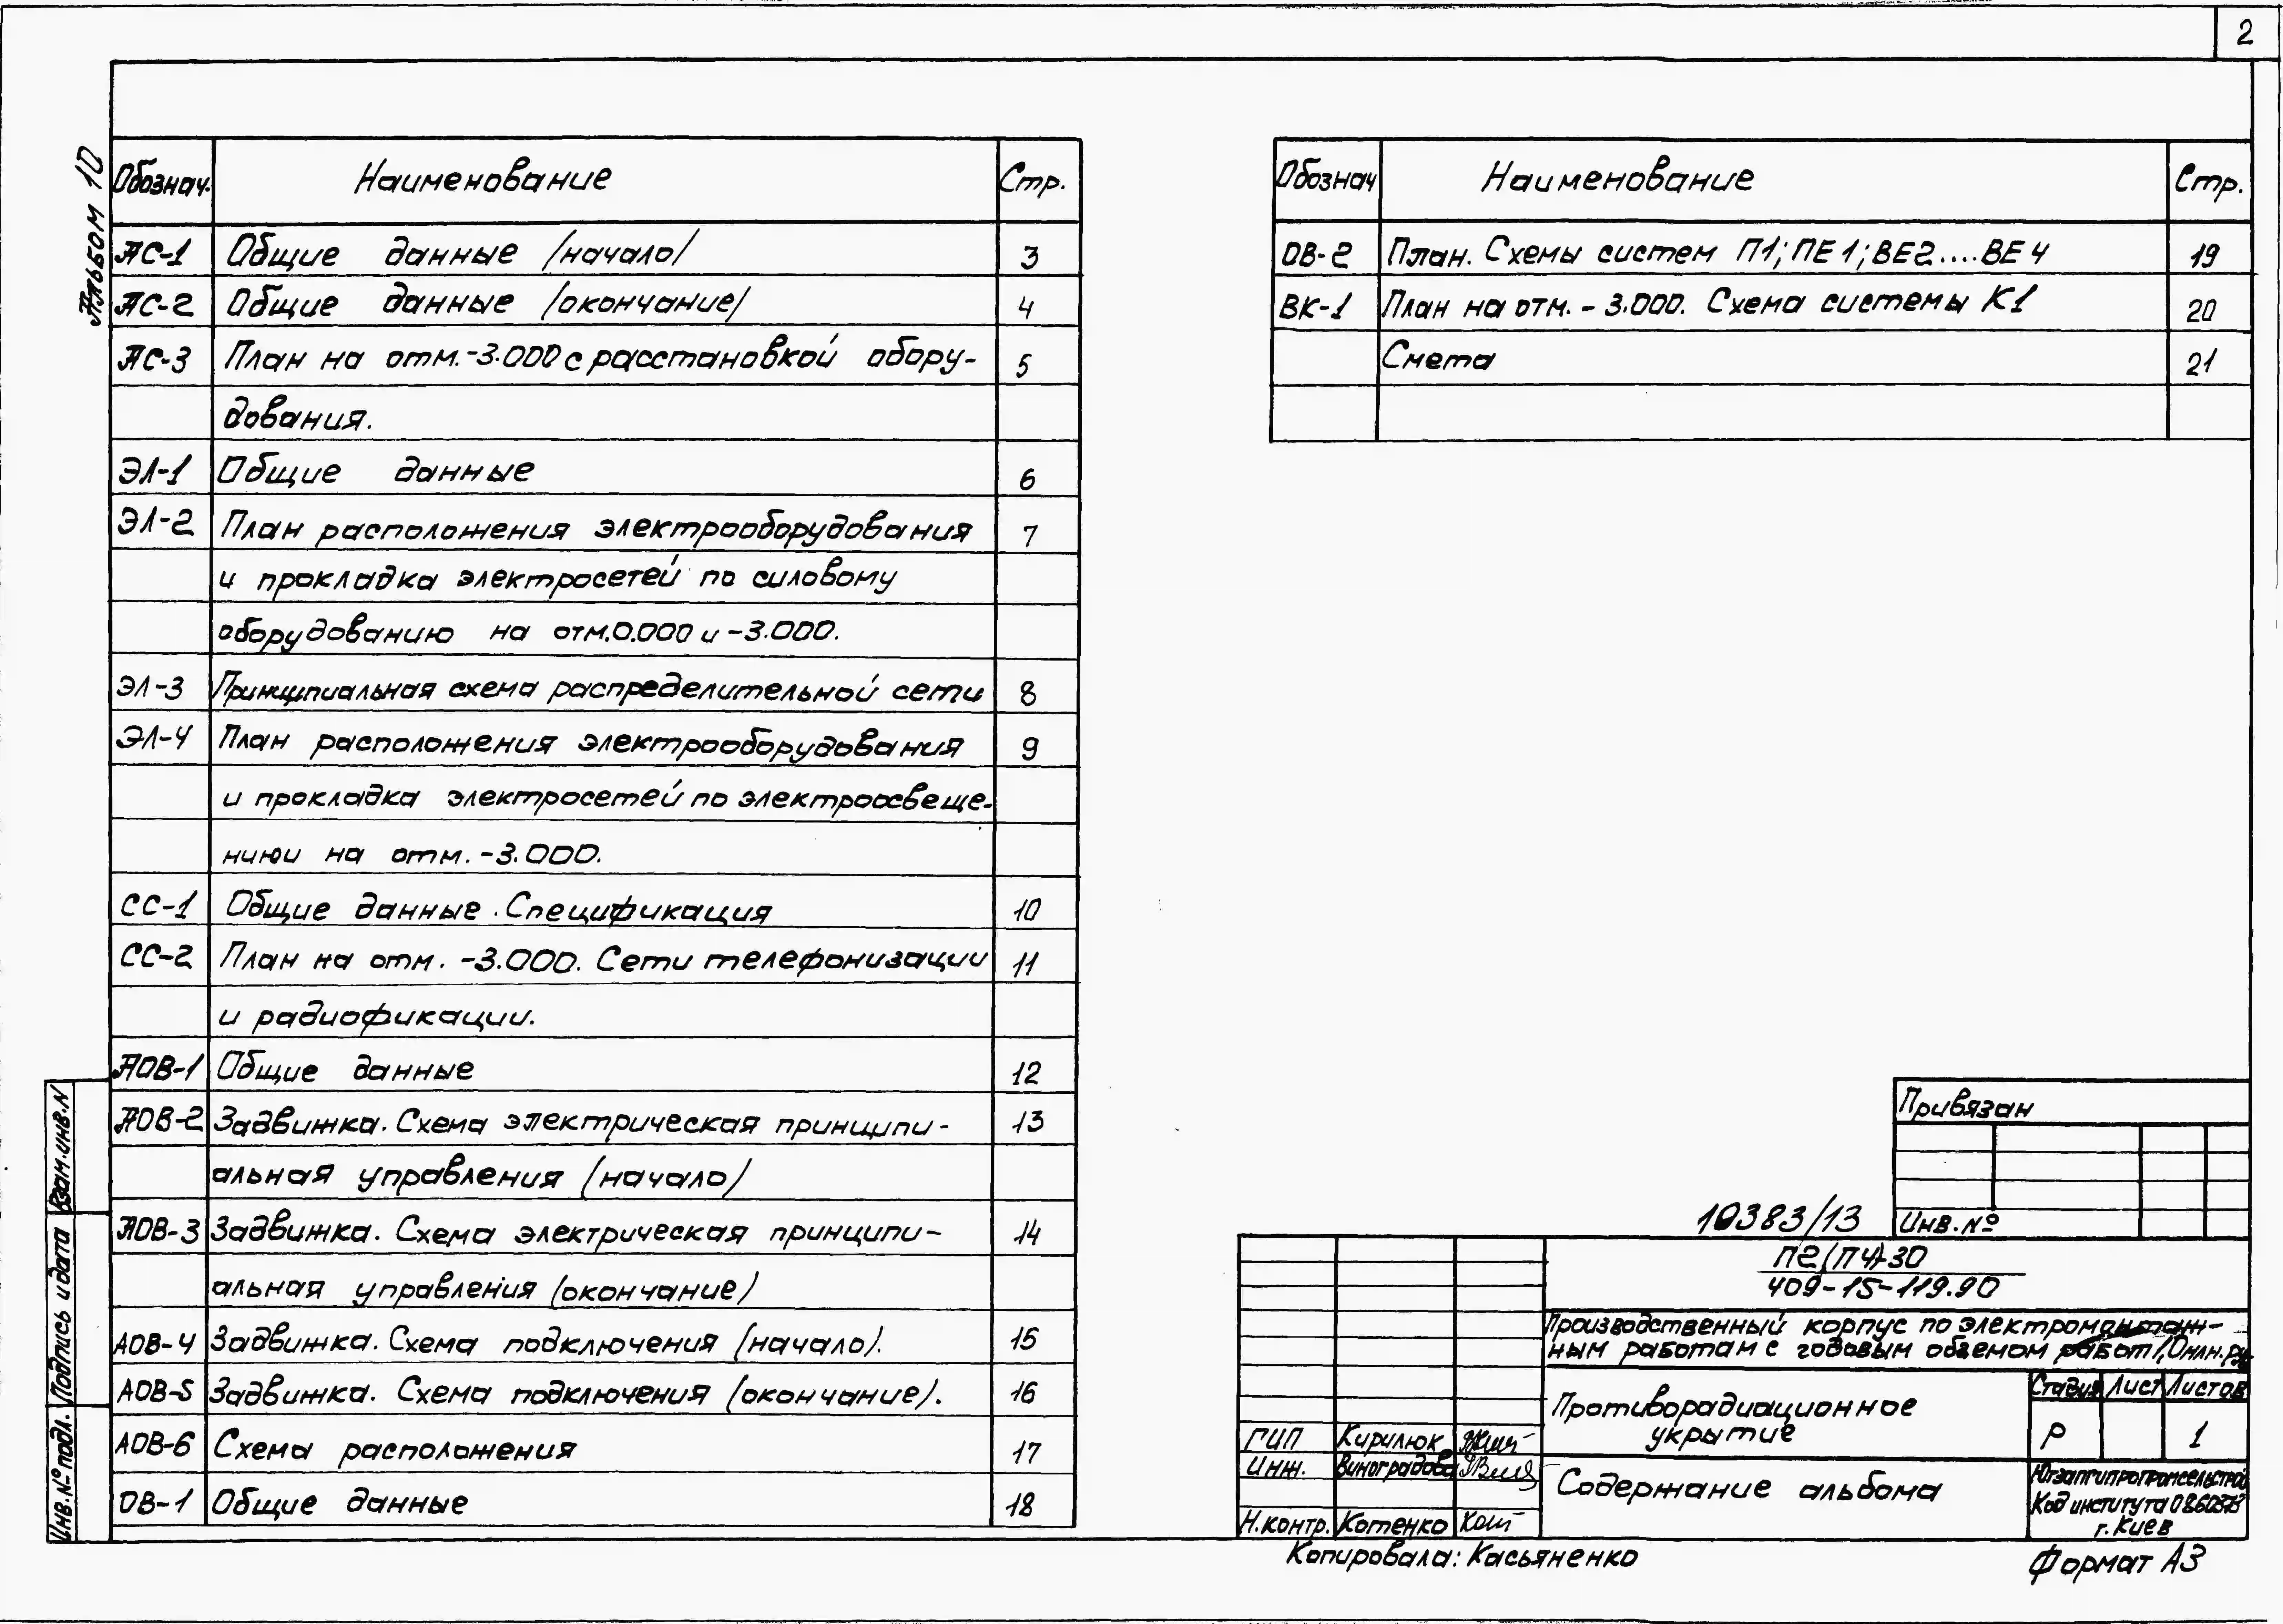 2
Альбом 10
Обознач. Наименование Стр.
АС-1 Общие данные /начало/ 3
АС-2 Общие данные /окончание/ 4
АС-3 План на отм.-3.000 с расстановкой обору- 5
дования.
ЭЛ-1 Общие данные 6
ЭЛ-2 План расположения электрооборудования 7
и прокладка электросетей по силовому
оборудованию на отм.0.000 и -3.000.
ЭЛ-3 Принципиальная схема распределительной сети 8
ЭЛ-4 План расположения электрооборудования 9
и прокладка электросетей по электроосвеще-
нию на отм. -3.000.
СС-1 Общие данные. Спецификация 10
СС-2 План на отм. -3.000. Сети телефонизации 11
и радиофикации.
АОВ-1 Общие данные 12
АОВ-2 Задвижка. Схема электрическая принципи- 13
альная управления (начало)
АОВ-3 Задвижка. Схема электрическая принципи- 14
альная управления (окончание)
АОВ-4 Задвижка. Схема подключения (начало). 15
АОВ-5 Задвижка. Схема подключения (окончание). 16
АОВ-6 Схема расположения 17
ОВ-1 Общие данные 18
Обознач Наименование Стр.
ОВ-2 План. Схемы систем П1; ПЕ1; ВЕ2....ВЕ4 19
ВК-1 План на отм. -3.000. Схема системы К1 20
Смета 21
Взам.инв.N
Подпись и дата
Инв.№ подл.
Привязан
Инв.№
10383/13
П2(П4)-30
409-15-119.90
Производственный корпус по электромонтаж-
ным работам с годовым объемом работ 1,0млн.ру
Противорадиационное
укрытие
Стадия Лист Листов
Р 1
Содержание альбома
Код института
г. Киев
ГИП Кирилюк
Инж. Виноградова
Н.контр. Котенко
Копировала: Касьяненко
Формат А3